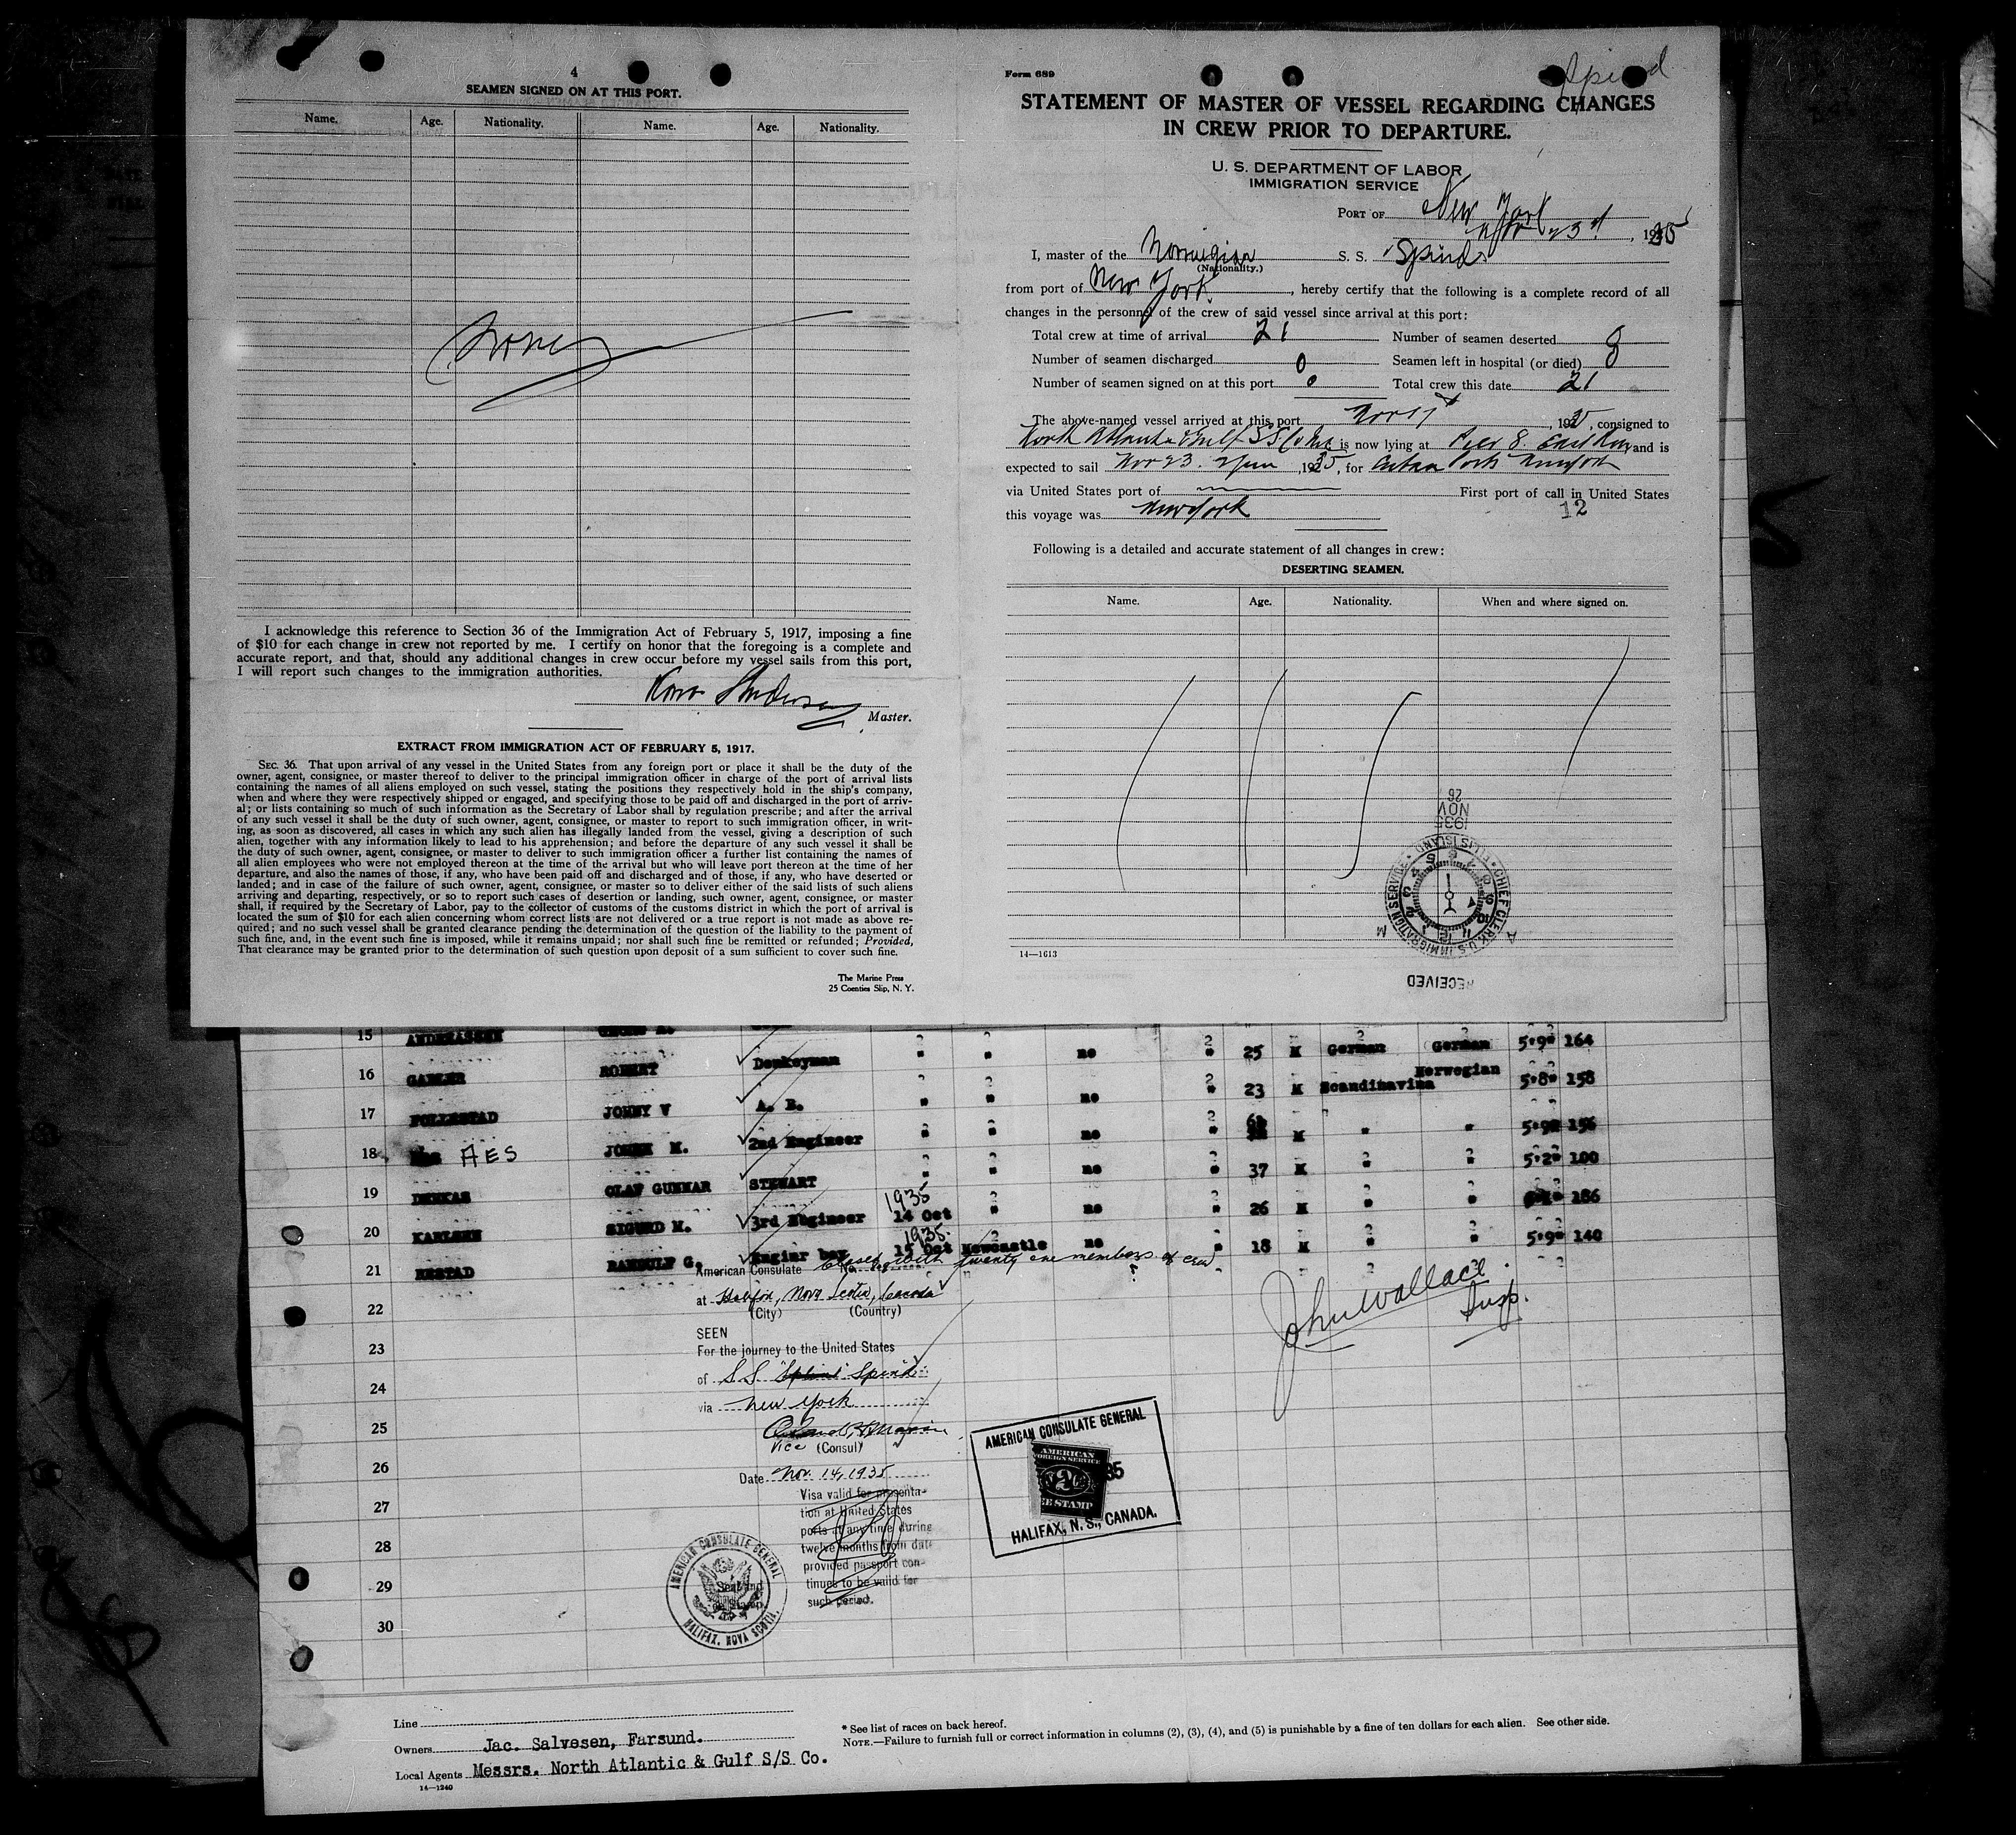 4
SEAMEN SIGNED ON AT THIS PORT.
Name. Age. Nationality. Name. Age. Nationality.
None
I acknowledge this reference to Section 36 of the Immigration Act of February 5, 1917, imposing a fine
of $10 for each change in crew not reported by me. I certify on honor that the foregoing is a complete and
accurate report, and that, should any additional changes in crew occur before my vessel sails from this port,
I will report such changes to the immigration authorities.
Andersen
Master.
EXTRACT FROM IMMIGRATION ACT OF FEBRUARY 5, 1917.
SEC. 36. That upon arrival of any vessel in the United States from any foreign port or place it shall be the duty of the
owner, agent, consignee, or master thereof to deliver to the principal immigration officer in charge of the port of arrival lists
containing the names of all aliens employed on such vessel, stating the positions they respectively hold in the ship's company,
when and where they were respectively shipped or engaged, and specifying those to be paid off and discharged in the port of arriv-
al; or lists containing so much of such information as the Secretary of Labor shall by regulation prescribe; and after the arrival
of any such vessel it shall be the duty of such owner, agent, consignee, or master to report to such immigration officer, in writ-
ing, as soon as discovered, all cases in which any such alien has illegally landed from the vessel, giving a description of such
alien, together with any information likely to lead to his apprehension; and before the departure of any such vessel it shall be
the duty of such owner, agent, consignee, or master to deliver to such immigration officer a further list containing the names of
all alien employees who were not employed thereon at the time of the arrival but who will leave port thereon at the time of her
departure, and also the names of those, if any, who have been paid off and discharged and of those, if any, who have deserted or
landed; and in case of the failure of such owner, agent, consignee, or master so to deliver either of the said lists of such aliens
arriving and departing, respectively, or so to report such cases of desertion or landing, such owner, agent, consignee, or master
shall, if required by the Secretary of Labor, pay to the collector of customs of the customs district in which the port of arrival is
located the sum of $10 for each alien concerning whom correct lists are not delivered or a true report is not made as above re-
quired; and no such vessel shall be granted clearance pending the determination of the question of the liability to the payment of
such fine, and, in the event such fine is imposed, while it remains unpaid; nor shall such fine be remitted or refunded; Provided,
That clearance may be granted prior to the determination of such question upon deposit of a sum sufficient to cover such fine.
The Marine Press
25 Coenties Slip, N. Y.
Form 689
Spind
STATEMENT OF MASTER OF VESSEL REGARDING CHANGES
IN CREW PRIOR TO DEPARTURE.
U. S. DEPARTMENT OF LABOR
IMMIGRATION SERVICE
PORT OF New York
Nov 23d, 1935
I, master of the Norwegian S. S. Spind
(Nationality.)
from port of New York, hereby certify that the following is a complete record of all
changes in the personnel of the crew of said vessel since arrival at this port:
Total crew at time of arrival 21 Number of seamen deserted 0
Number of seamen discharged 0 Seamen left in hospital (or died) 0
Number of seamen signed on at this port 0 Total crew this date 21
The above-named vessel arrived at this port Nov 17, 1935, consigned to
North Atlantic & Gulf SS Co Inc is now lying at Pier 8 East River, and is
expected to sail Nov 23. 2 pm, 1935, for Cuban Ports
via United States port of First port of call in United States
this voyage was New York 12
Following is a detailed and accurate statement of all changes in crew:
DESERTING SEAMEN.
Name. Age. Nationality. When and where signed on.
1935
NOV
26
CHIEF CLERK U.S. IMMIGRATION SERVICE ELLIS ISLAND
A M
14—1613
RECEIVED
15 ANDREASSEN
16 GABLER ROBERT Donkeyman " " no " 25 M German German 5.9" 164
17 FOLLESTAD JOHNY V A. B. " " no " 23 M Scandinavian Norwegian 5.8" 158
18 AES JOHAN M. 2nd Engineer " " no " M " " 5.9" 156
19 OLAF GUNNAR STEWART " " no " 37 M " " 5.2" 100
20 KARLSEN SIGURD M. 3rd Engineer 1935 14 Oct " no " 26 M " " 186
21 RANDULF G. Enginr boy 1935 15 Oct Newcastle no " 18 M " " 5.9" 140
Closed with twenty one members of crew
American Consulate
at Halifax, Nova Scotia, Canada
(City) (Country)
22
SEEN
John Wallace
Insp.
23 For the journey to the United States
of S.S. Spind
24
via New York
25
Vice (Consul)
26
Date Nov. 14, 1935
27 Visa valid for presenta-
tion at United States
ports at any time during
28 twelve months from date
provided passport con-
29 tinues to be valid for
such period.
30
AMERICAN CONSULATE GENERAL
AMERICAN
FOREIGN SERVICE
2
FEE STAMP
35
HALIFAX, N. S., CANADA.
AMERICAN CONSULATE GENERAL
Seal and
Stamp.
HALIFAX, NOVA SCOTIA.
Line
Owners Jac. Salvesen, Farsund.
Local Agents Messrs. North Atlantic & Gulf S/S Co.
14—1240
* See list of races on back hereof.
NOTE.—Failure to furnish full or correct information in columns (2), (3), (4), and (5) is punishable by a fine of ten dollars for each alien. See other side.